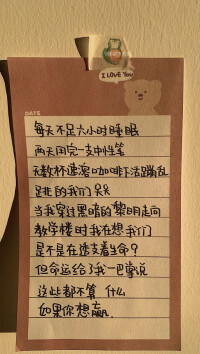 I LOVE YOU
DATE
每天不足六小时睡眠
两天用完一支中性笔
无数杯速溶咖啡下活蹦乱
跳的我们
当我穿过黑暗的黎明走向
教学楼时我在想我们
是不是在透支着生命?
但命运给了我一巴掌说
这些都不算什么
如果你想赢.